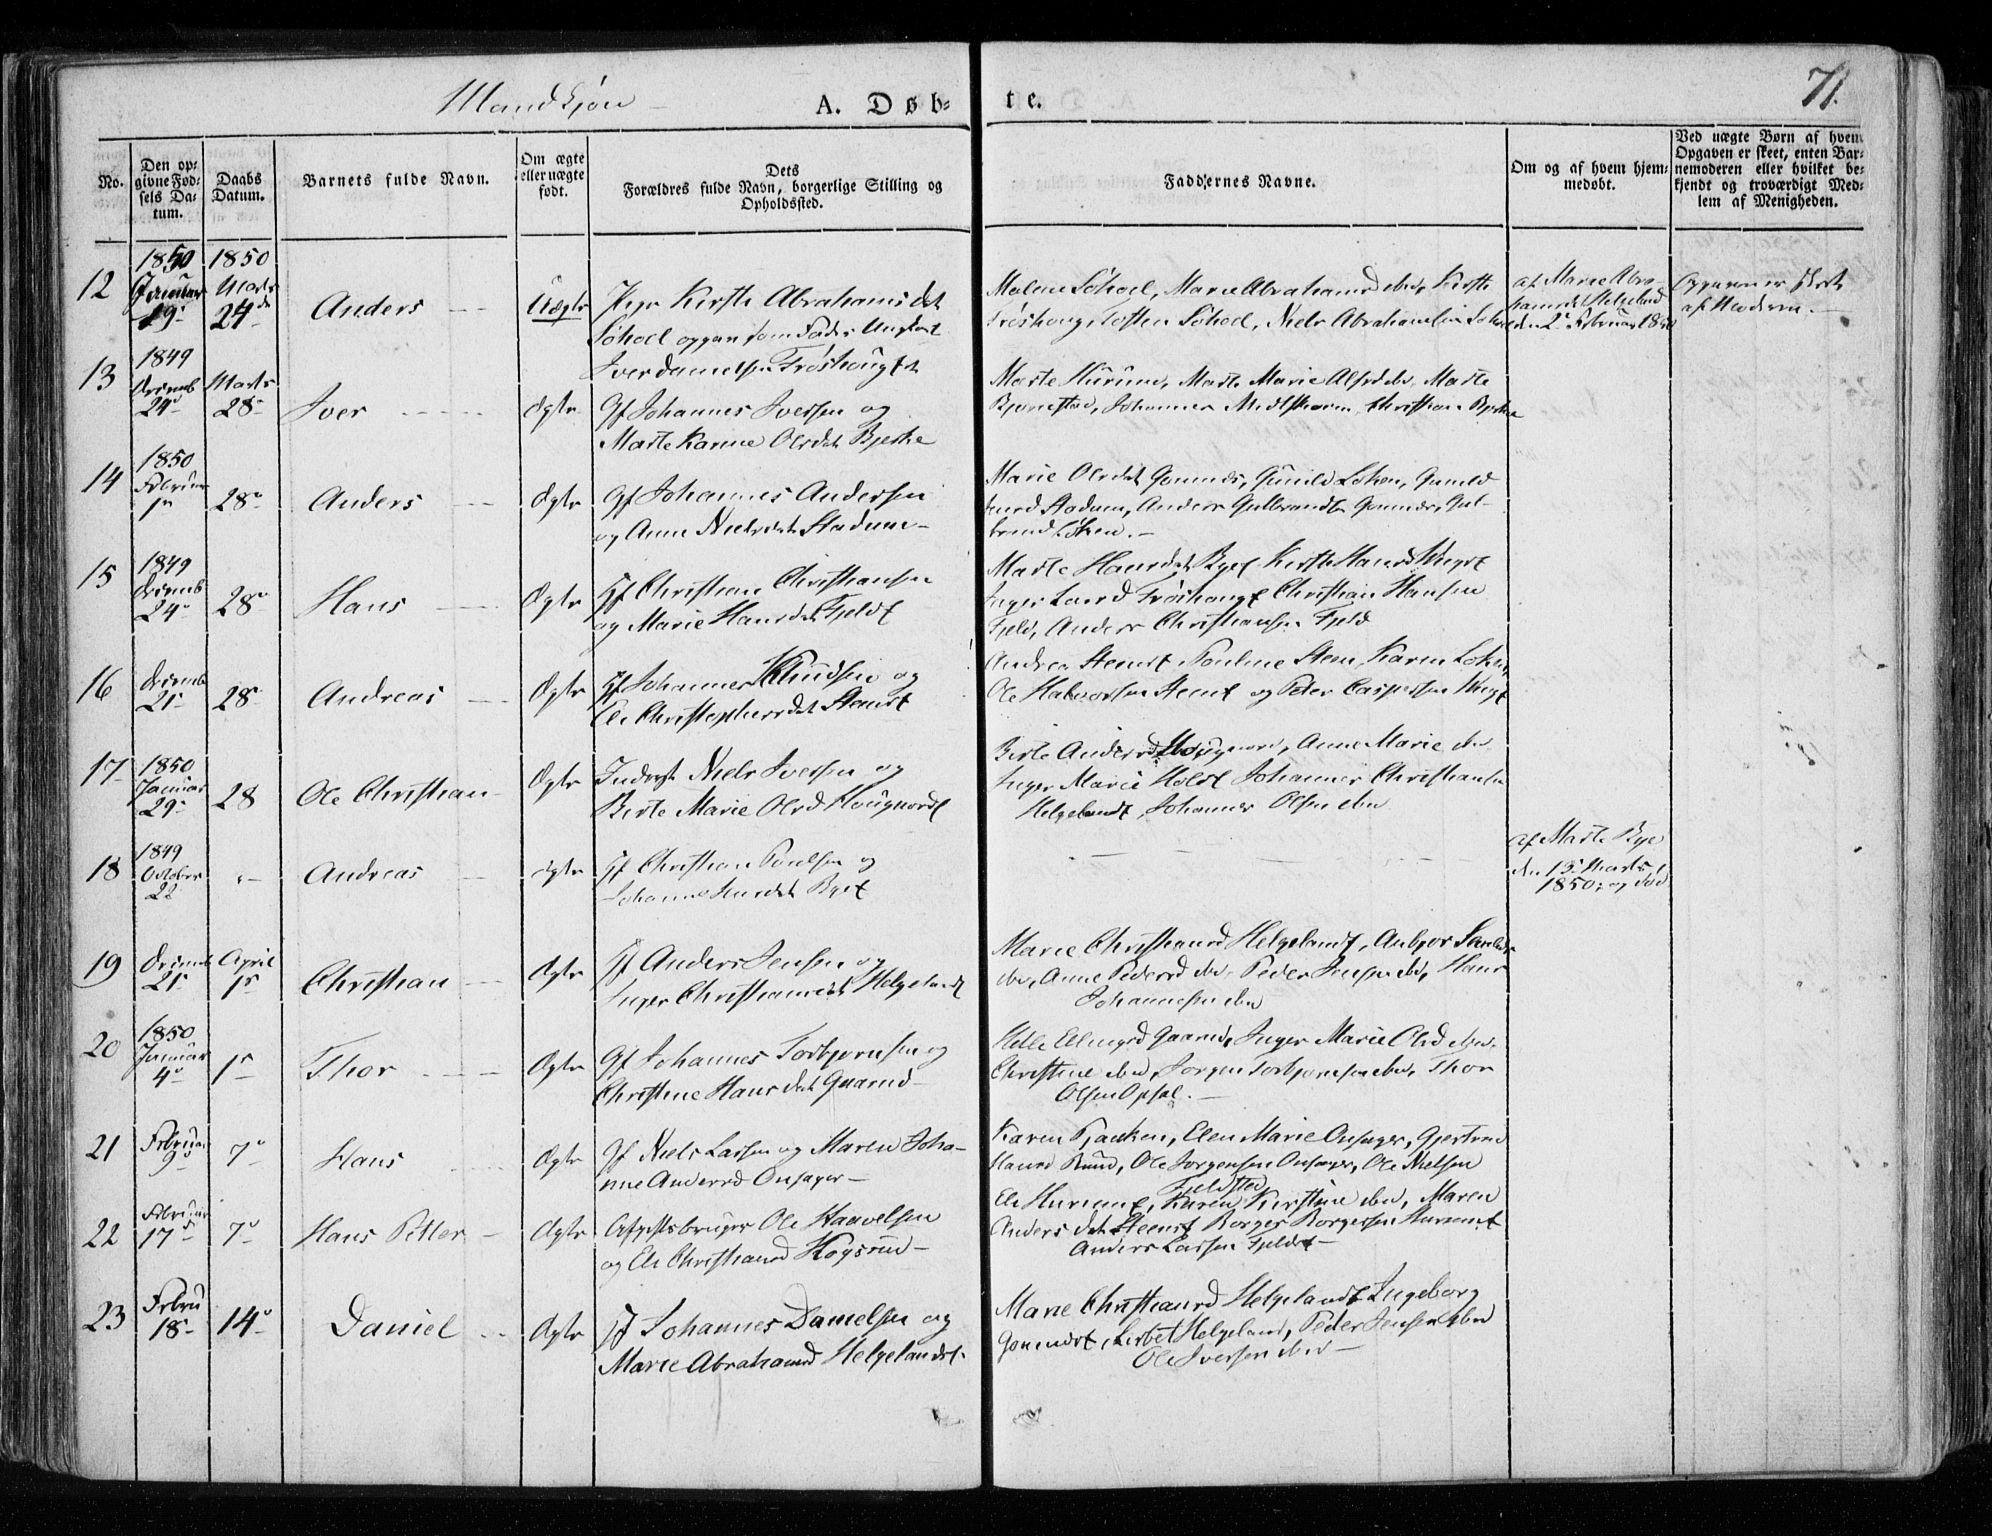 Mandkjøn
A. Døb-
te.
71.
No.
Den op-
givne Fød-
sels Da-
tum.
Daabs
Datum.
Barnets fulde Navn.
Om ægte
eller uægte
født.
Dets
Forældres fulde Navn, borgerlige Stilling og
Opholdssted.
Faddernes Navne.
Om og af hvem hjem-
medøbt.
Ved uægte Børn af hvem
Opgaven er skeet, enten Bar-
nemoderen eller hvilket be-
kjendt og troværdigt Med-
lem af Menigheden.
12
1850
Januar
19
1850
Marts
24de
Anders
Uægte
Pige Kirsti Abrahamsdat
Søhoel opgav som Fader Ungkarl
Iver Danielsen Frøshoug
Malene Søhoel, Marie Abrahamsd ibd, Kirsti
Frøshoug, Tosten Søhoel, Niels Abrahamsen
af Marie Abra-
hamsdat Helgeland
den 2 Februar 1850
Opgaven er skeet
af Moderen.
13
1849
Decemb
24
Marts
28
Iver
Ægte
Gf Johannes Iversen og
Marte Karine Olsdat Bjerke
Marte Hurum, Marte Marie Alfsd ibd, Marte
Bjørnstad, Johannes Christian
14
1850
Februar
1
28
Anders
Ægte
Gf Johannes Andersen
og Anne Nielsdat Stadum
Marie Olsdat Gommes, Gunild Løken, Gunild
Stadum, Anders Gulbrands Gommes, Gul-
brand Løken.
15
1849
Decemb
24
28
Hans
Ægte
Gf Christian Christiansen
og Marie Hansdat Fjeld
Marte Hansdat Bye Kirsti Hansd
Inger Larsd Frøshoug Christian Hansen
Fjeld, Anders Christiansen Fjeld
16
Decemb
21
28
Andreas
Ægte
Gf Johannes Knudsen og
Eli Christophersdat Steen
Andrea Steen Pauline Steen, Karen Løken
Ole Halvorsen Steen og Peter Caspersen
17
1850
Januar
29
28
Ole Christian
Ægte
Inderst Niels Iversen og
Birte Marie Olsd Hougnord
Birte Andersd Hougnord, Anne Marie ibd
Inger Marie Holst Johannes Christiansen
Helgeland, Johannes Olsen ibd
18
1849
October
22
Andreas
Ægte
Gf Christian Poulsen og
Johanne Bye
af Marte Bye
den 13 Marts
1850, og død
19
Decemb
21
April
1
Christian
Ægte
Gf Anders Jensen og
Inger Christiansdat Helgeland
Marie Christiansd Helgeland, Anbjør
ibd, Anne Pedersd ibd, Peder Jensen ibd, Hans
Johannesen ibd
20
1850
Januar
4
1
Thor
Ægte
Gf Johannes Torbjørnsen og
Christine Hansdat Gaarud
Helle Ellingsd Gaarud, Inger Marie Olsd ibd,
Christine ibd, Jørgen Torbjørnsen ibd, Thor
Olsen Opsal.
21
Februar
9
7
Hans
Ægte
Gf Niels Larsen og Maren Joha-
nne Andersd Onsager
Karen Tjanken, Elen Marie Onsager, Gjertrud
Hansd Ruud, Ole Jørgensen Onsager, Ole Nielsen
Fjeldstad
22
Februar
17
7
Hans Petter
Ægte
Ole Haavelsen
og Eli Christiansd Høgsrud
Eli Hurum, Karen Kirstine ibd, Maren
Andersdat Steen Borger Borgersen Hurum
Anders Larsen Fjeld
23
Febru
18
14
Daniel
Ægte
Gf Johannes Danielsen og
Marie Abrahamsd Helgeland
Marie Christiansd Helgeland Ingeborg
Lisbet Helgeland, Peder Jensen ibd
Ole Iversen ibd